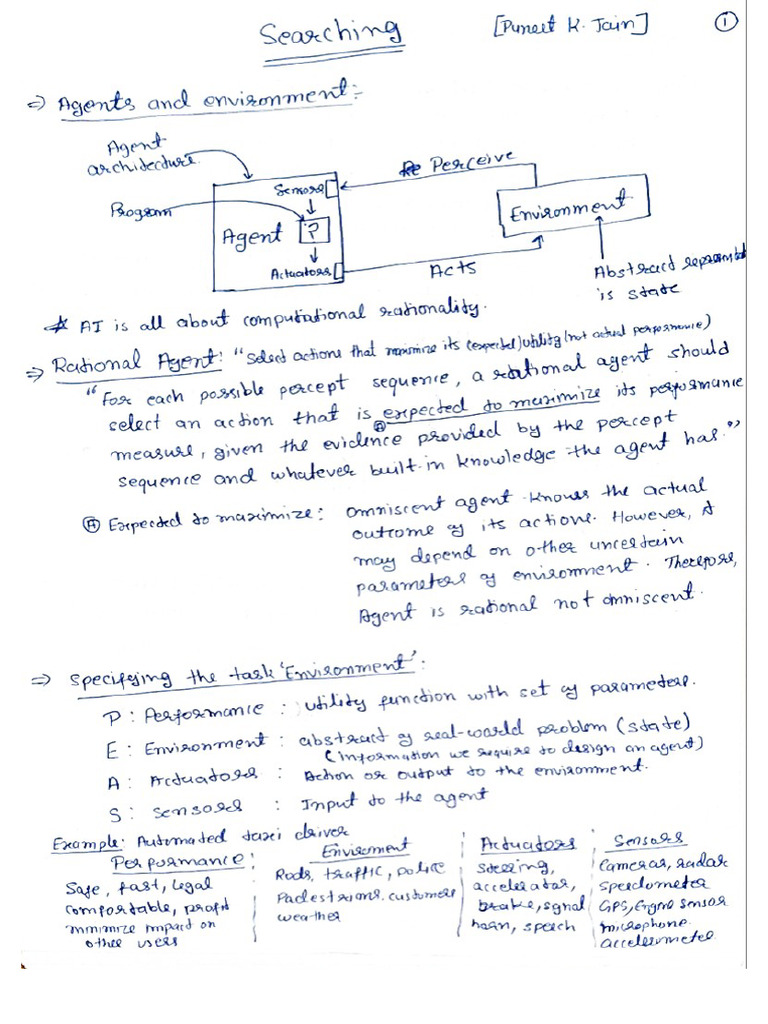 Searching
[Puneet K. Jain]
1
⇒ Agents and environment:-
Agent
architecture.
Program
Sensors
Agent
?
Actuators
Perceive
Acts
Environment
Abstract
is state
* AI is all about computational rationality.
⇒ Rational Agent: "Select actions that maximize its (expected) utility (not actual performance)
"For each possible percept sequence, a rational agent should
select an action that is expected to maximize its performance
measure, given the evidence provided by the percept
sequence and whatever built-in knowledge the agent has."
Ⓐ Expected to maximize: omniscent agent knows the actual
outcome of its actions. However, it
may depend on other uncertain
parameters of environment. Therefore,
Agent is rational not omniscent.
⇒ Specifying the task 'Environment':
P : Performance : utility function with set of parameters.
E : Environment : abstract of real-world problem (state)
(information we require to design an agent)
A : Actuators : Action or output to the environment.
S : Sensors : Input to the agent
Example: Automated taxi driver
Performance:
Safe, fast, legal
comfortable, profit
minimize impact on
other users
Enviroment
Rods, traffic, police
Padestrians, customers
weather
Actuators
steering,
accelerator,
brake, signal
horn, speech
Sensors
Cameras, radar
Speedometer
GPS, Engine sensor
microphone
accelerometer